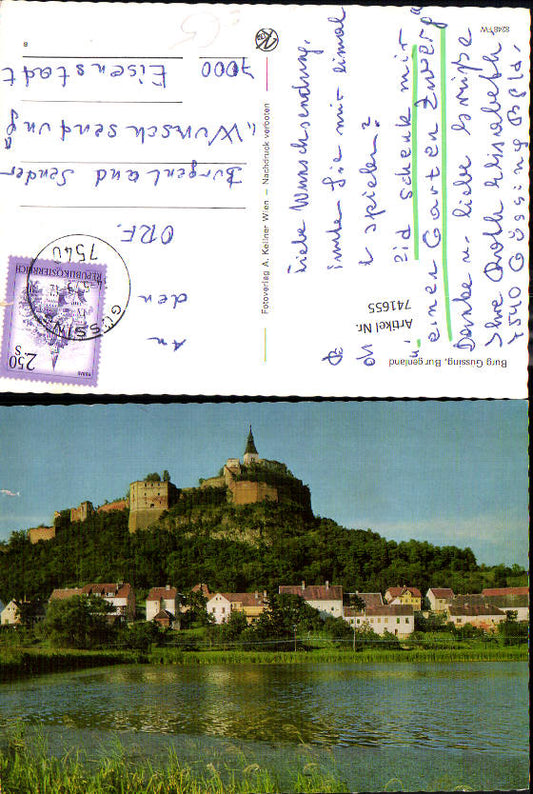 Burg Güssing, Burgenland
8248 FW
Liebe Wunschsendung,
Sie mir einmal
spielen?
schenk mir
einen Garten Zwerg"
Danke u. liebe Grüße
Ihre Elisabeth
7540 Güssing Bgld.
Artikel Nr.
741655
Fotoverlag A. Kellner Wien – Nachdruck verboten
2.50
S
REPUBLIK ÖSTERREICH
7540
GÜSSING
An
den
ORF.
Burgenland Sender
„Wunschsendung"
7000 Eisenstadt